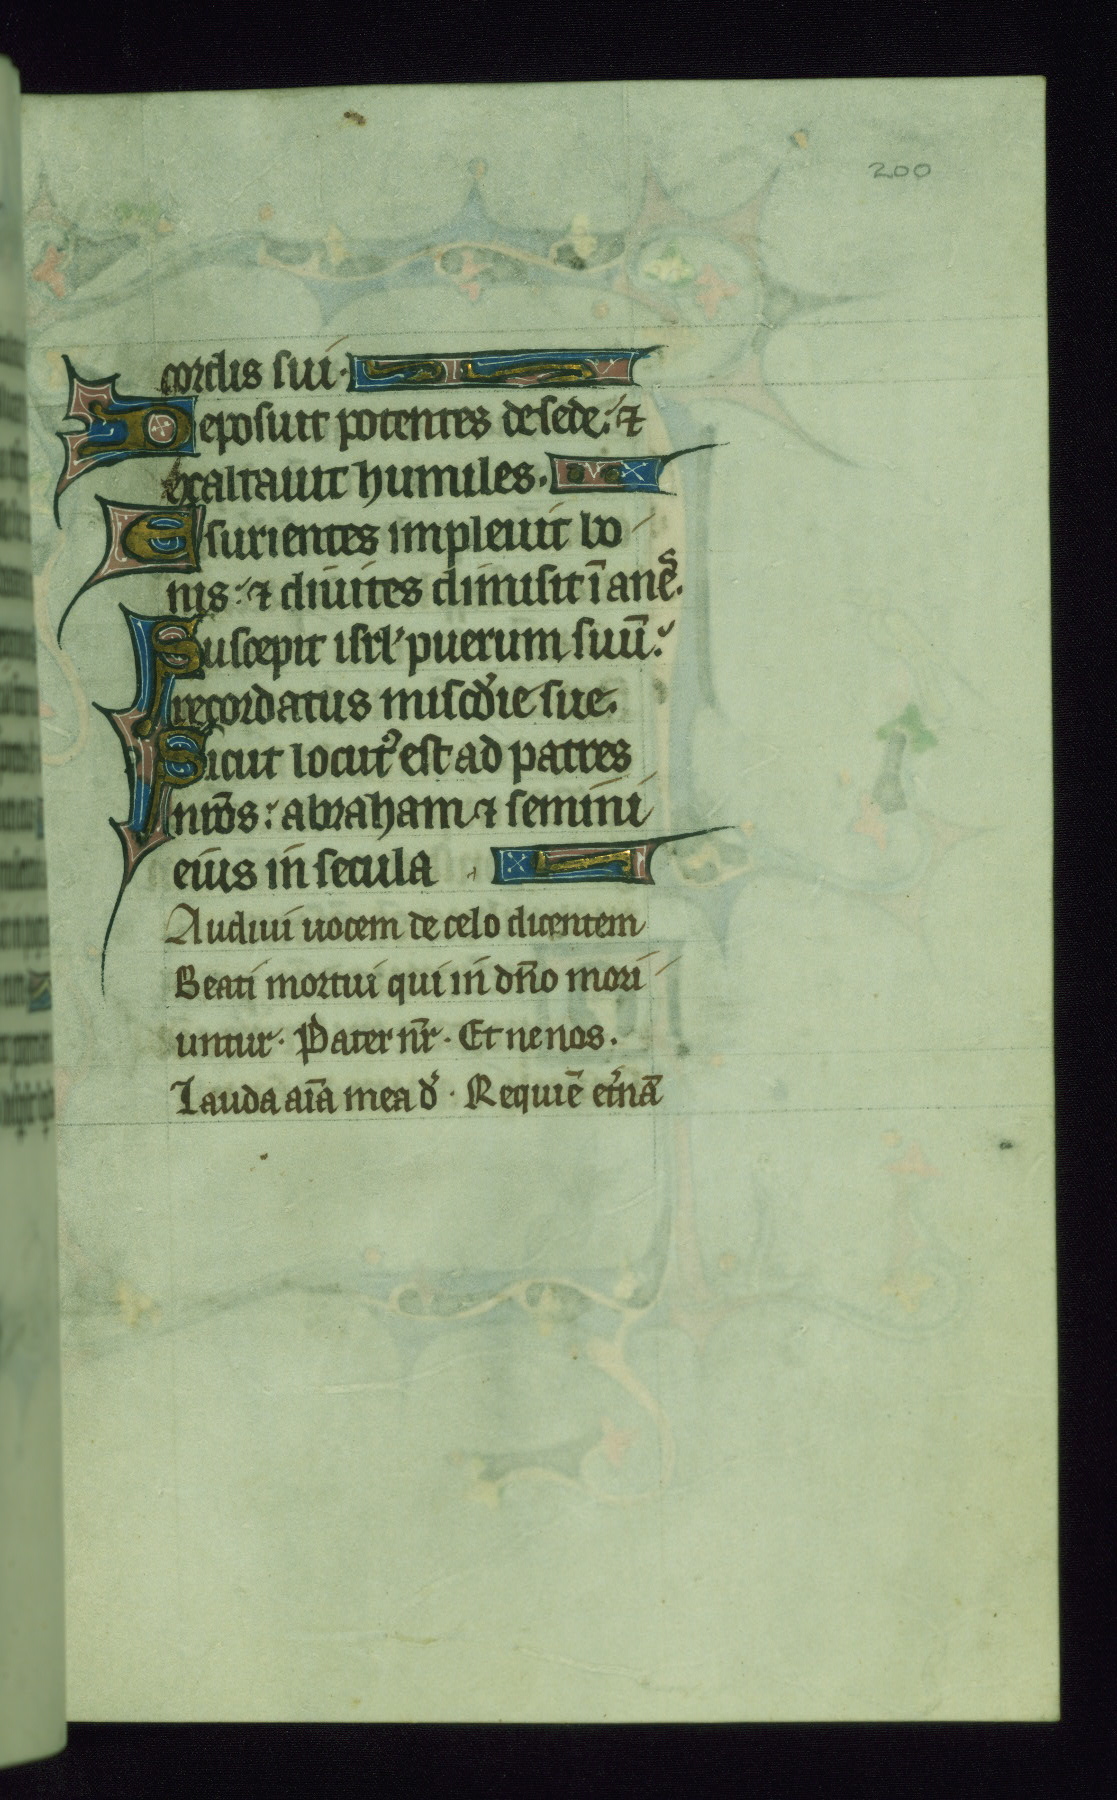 200
cordis sui.
Deposuit potentes de sede: ⁊
exaltauit humiles.
Esurientes impleuit bo
nis: ⁊ diuites dimisit īanēs.
Suscepit isrl' puerum suū:
recordatus misc̄die sue.
Sicut locutꝰ est ad patres
nr̄os: abraham ⁊ semini
eius in secula
Audiui uocem de celo dicentem
Beati mortui qui in dn̄o mori
untur. Pater nr̄. Et ne nos.
Lauda aīa mea d'. Requiē et'nā